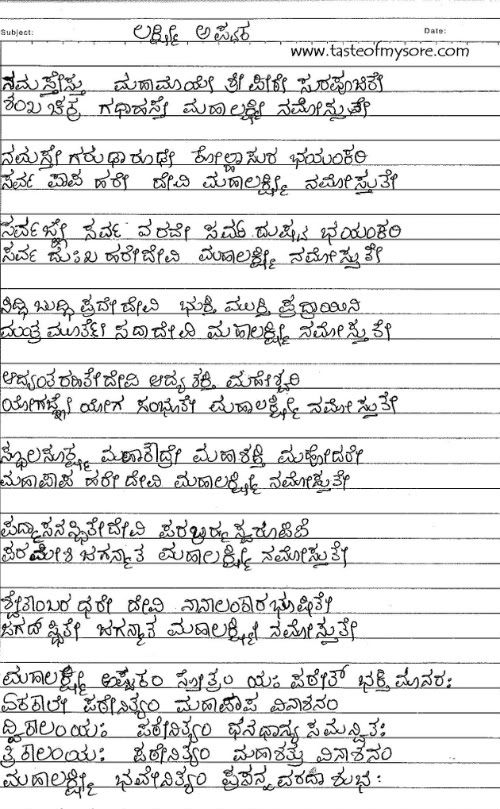 Subject:
ಲಕ್ಷ್ಮೀ ಅಷ್ಟಕ
Date:
www.tasteofmysore.com
ನಮಸ್ತೇಸ್ತು ಮಹಾಮಾಯೇ ಶ್ರೀ ಪೀಠೇ ಸುರಪೂಜಿತೇ
ಶಂಖ ಚಕ್ರ ಗಧಾಹಸ್ತೇ ಮಹಾಲಕ್ಷ್ಮೀ ನಮೋಸ್ತುತೇ
ನಮಸ್ತೇ ಗರುಢಾರೂಢೇ ಕೋಲ್ಹಾಸುರ ಭಯಂಕರಿ
ಸರ್ವ ಪಾಪ ಹರೇ ದೇವಿ ಮಹಾಲಕ್ಷ್ಮೀ ನಮೋಸ್ತುತೇ
ಸರ್ವಜ್ಞೇ ಸರ್ವ ವರದೇ ಸರ್ವ ದುಷ್ಟ ಭಯಂಕರಿ
ಸರ್ವ ದುಃಖ ಹರೇದೇವಿ ಮಹಾಲಕ್ಷ್ಮೀ ನಮೋಸ್ತುತೇ
ಸಿದ್ಧಿ ಬುದ್ಧಿ ಪ್ರದೇದೇವಿ ಭುಕ್ತಿ ಮುಕ್ತಿ ಪ್ರದಾಯಿನಿ
ಮಂತ್ರ ಮೂರ್ತೇ ಸದಾದೇವಿ ಮಹಾಲಕ್ಷ್ಮೀ ನಮೋಸ್ತುತೇ
ಆದ್ಯಂತರಹಿತೇದೇವಿ ಆದ್ಯಶಕ್ತಿ ಮಹೇಶ್ವರಿ
ಯೋಗಜ್ಞೇ ಯೋಗ ಸಂಭೂತೇ ಮಹಾಲಕ್ಷ್ಮೀ ನಮೋಸ್ತುತೇ
ಸ್ಥೂಲಸೂಕ್ಷ್ಮ ಮಹಾರೌದ್ರೇ ಮಹಾಶಕ್ತಿ ಮಹೋದರೇ
ಮಹಾಪಾಪ ಹರೇ ದೇವಿ ಮಹಾಲಕ್ಷ್ಮೀ ನಮೋಸ್ತುತೇ
ಪದ್ಮಾಸನಸ್ಥಿತೇದೇವಿ ಪರಬ್ರಹ್ಮಸ್ವರೂಪಿಣಿ
ಪರಮೇಶಿ ಜಗನ್ಮಾತ ಮಹಾಲಕ್ಷ್ಮೀ ನಮೋಸ್ತುತೇ
ಶ್ವೇತಾಂಬರ ಧರೇ ದೇವಿ ನಾನಾಲಂಕಾರ ಭೂಷಿತೇ
ಜಗದ್ ಸ್ಥಿತೇ ಜಗನ್ಮಾತ ಮಹಾಲಕ್ಷ್ಮೀ ನಮೋಸ್ತುತೇ
ಮಹಾಲಕ್ಷ್ಮೀ ಅಷ್ಟಕಂ ಸ್ತೋತ್ರಂ ಯಃ ಪಠೇತ್ ಭಕ್ತಿ ಮಾನರಃ
ಏಕಕಾಲೇ ಪಠೇನಿತ್ಯಂ ಮಹಾಪಾಪ ವಿನಾಶನಂ
ದ್ವಿಕಾಲಂಯಃ ಪಠೇನಿತ್ಯಂ ಧನಧಾನ್ಯ ಸಮನ್ವಿತಃ
ತ್ರಿಕಾಲಂಯಃ ಪಠೇನಿತ್ಯಂ ಮಹಾಶತ್ರು ವಿನಾಶನಂ
ಮಹಾಲಕ್ಷ್ಮೀ ಭವೇನಿತ್ಯಂ ಪ್ರಸನ್ನ ವರದಾ ಶುಭಃ